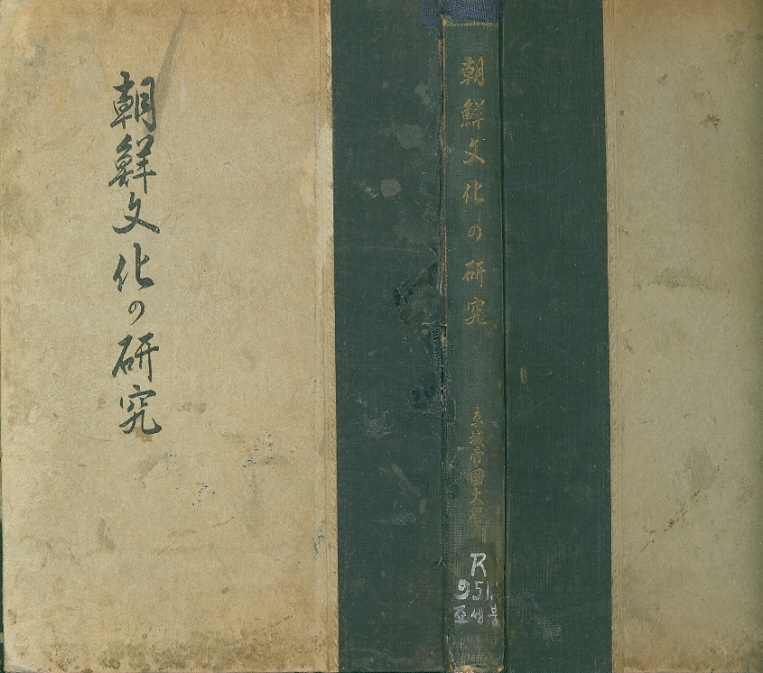 朝鮮文化の研究
朝鮮文化の研究
京城帝國大學
R
951.
조생